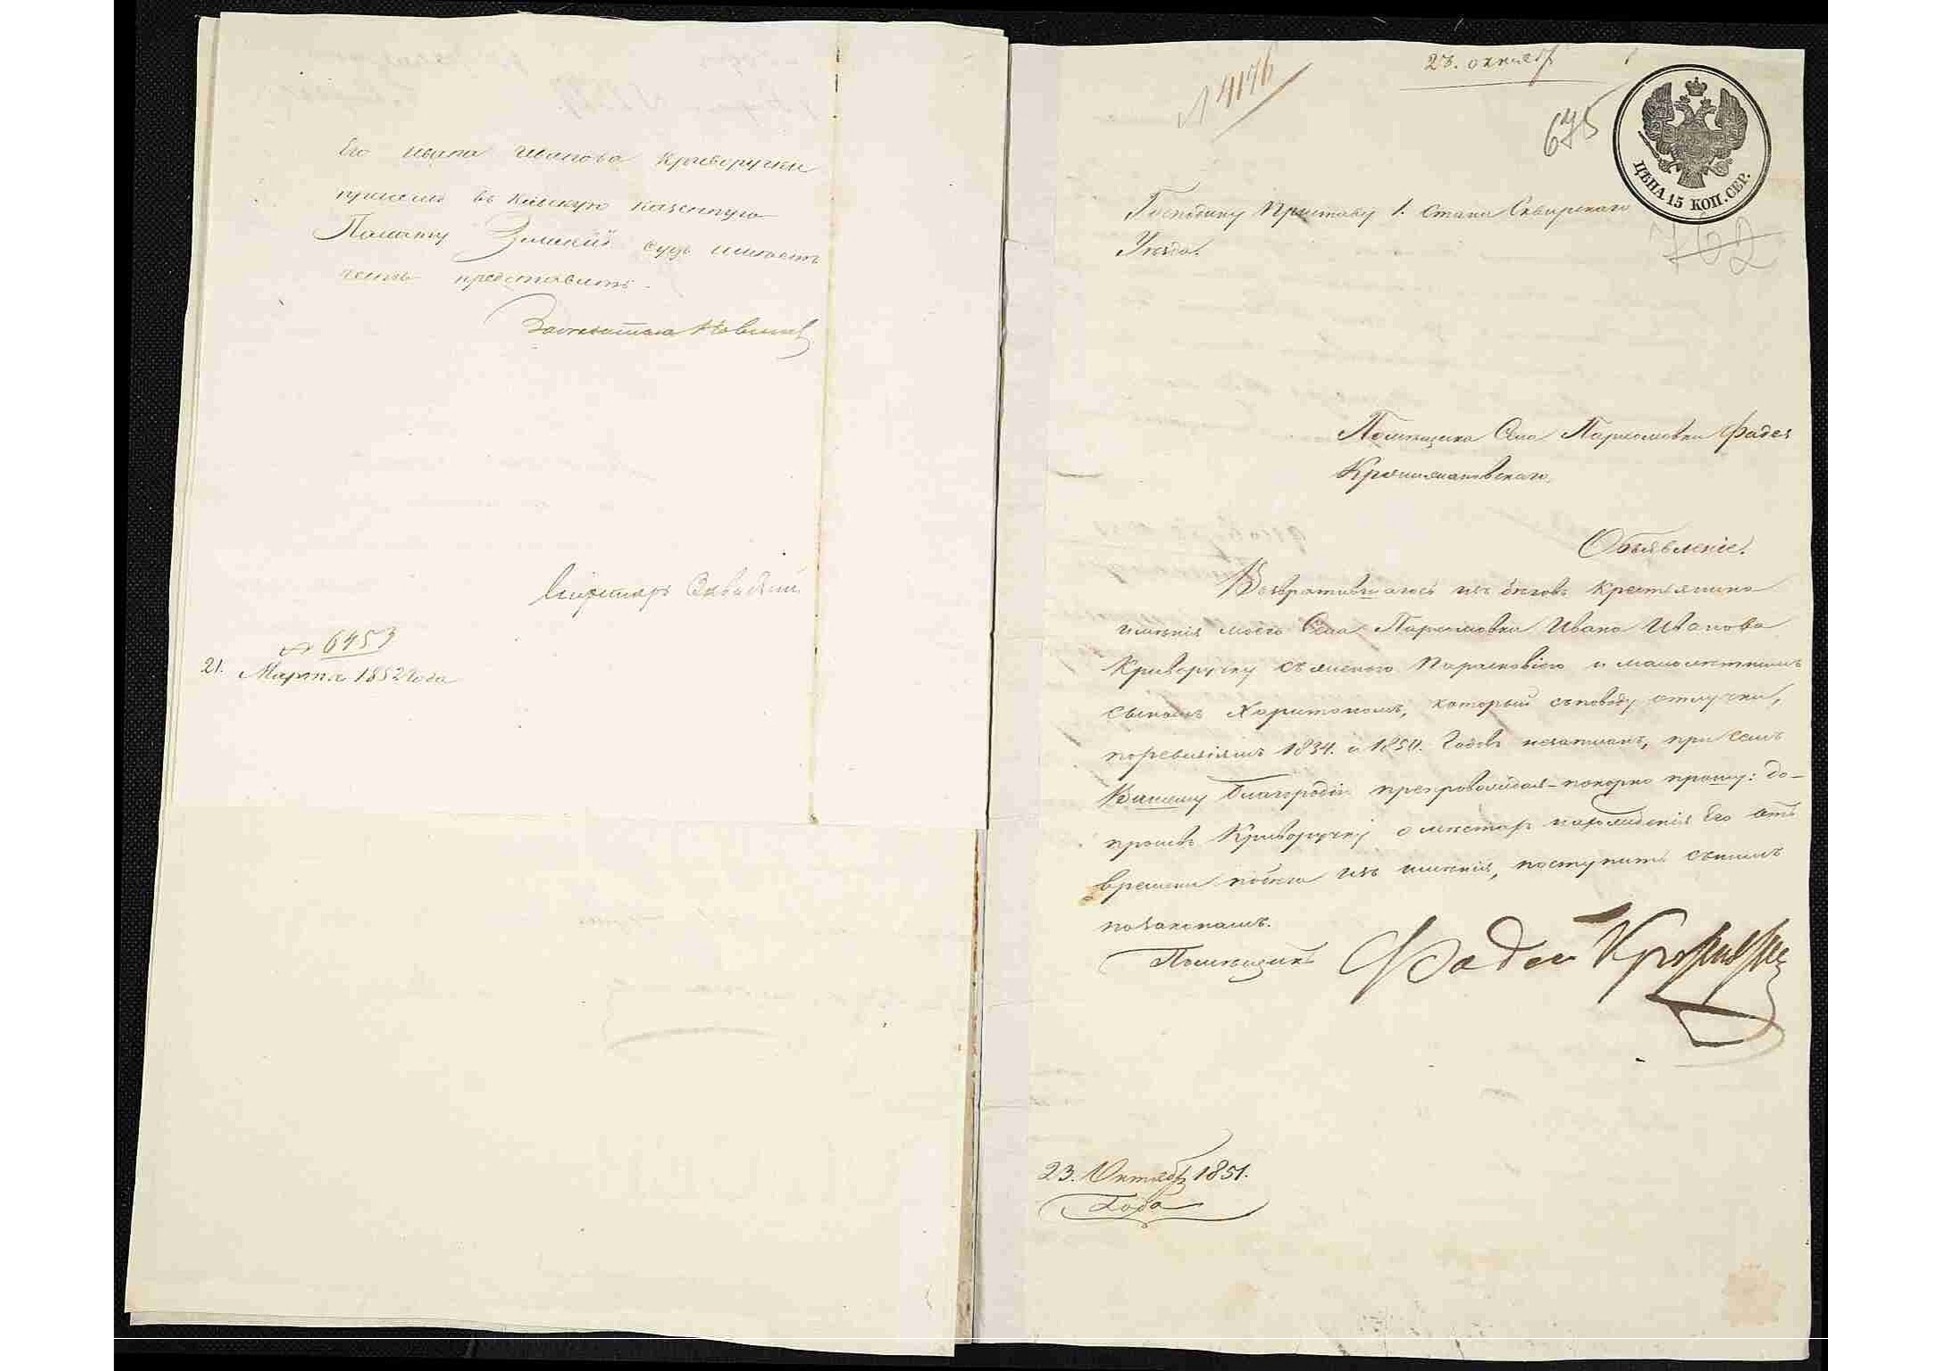 Его Ивана Иванова Криворучки
при семъ въ Кіевскую Казенную
Палату Земскій судъ имѣетъ
честь представить.
Секретарь
№ 6453
21. Марта 1852 года
№ 4176
23. октяб
675
ЦѢНА 15 КОП. СЕР.
762
Господину Приставу 1. стана Сквирскаго
Уѣзда.
Помѣщика Села Пархомовки Фадея
Объявленіе.
Возвратившагося изъ бѣговъ крестьянина
имѣнія моего Села Пархомовки Ивана Иванова
Криворучку съ женою Парасковіею и малолѣтнимъ
сыномъ Харитономъ, который съповоду отлучки,
поревизіямъ 1834. и 1850. Годовъ незаписанъ, при семъ
Вашему Благородію препровождая покорно прошу: до-
просивъ Криворучку о мѣстахъ нахожденія Его отъ
времени побѣга изъ имѣнія, поступить снимъ
позаконамъ.
Помѣщикъ Фадей
23. Октяб 1851.
Года